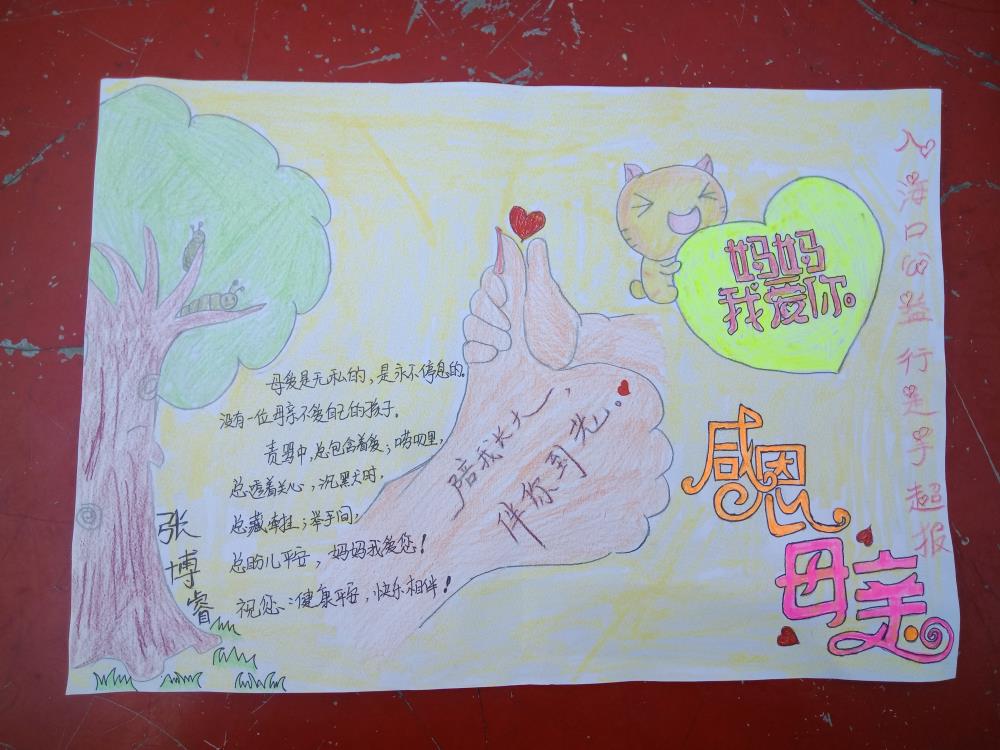 母爱是无私的，是永不停息的。
没有一位母亲不爱自己的孩子。
责骂中，总包含着爱；唠叨里，
总透着关心，沉默大时，
总藏牵挂；举手间，
总盼儿平安，妈妈我爱您！
祝您：健康平安，快乐相伴！
张博睿
陪我长大，
伴你到老。
妈妈
我爱你。
感恩
母亲
入海口公益行是手超报